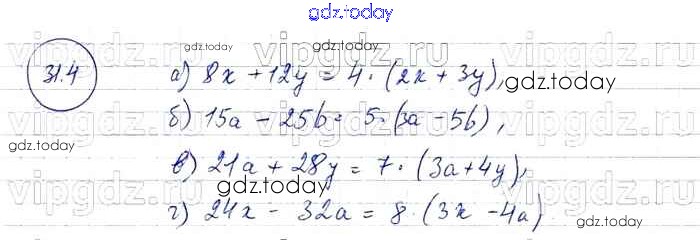 gdz.today
vipgdz.ru vipgdz.ru vipgdz.ru
31.4
gdz.today
а) 8x + 12y = 4 · (2x + 3y),
gdz.today
б) 15a - 25b = 5 · (3a - 5b),
gdz.today
vipgdz.ru vipgdz.ru vipgdz.ru
в) 21a + 28y = 7 · (3a + 4y),
gdz.today
г) 24x - 32a = 8 · (3x - 4a)
gdz.today
vipgdz.ru vipgdz.ru vipgdz.ru